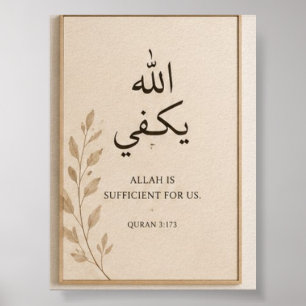 الله
يكفي
ALLAH IS
SUFFICIENT FOR US.
QURAN 3:173